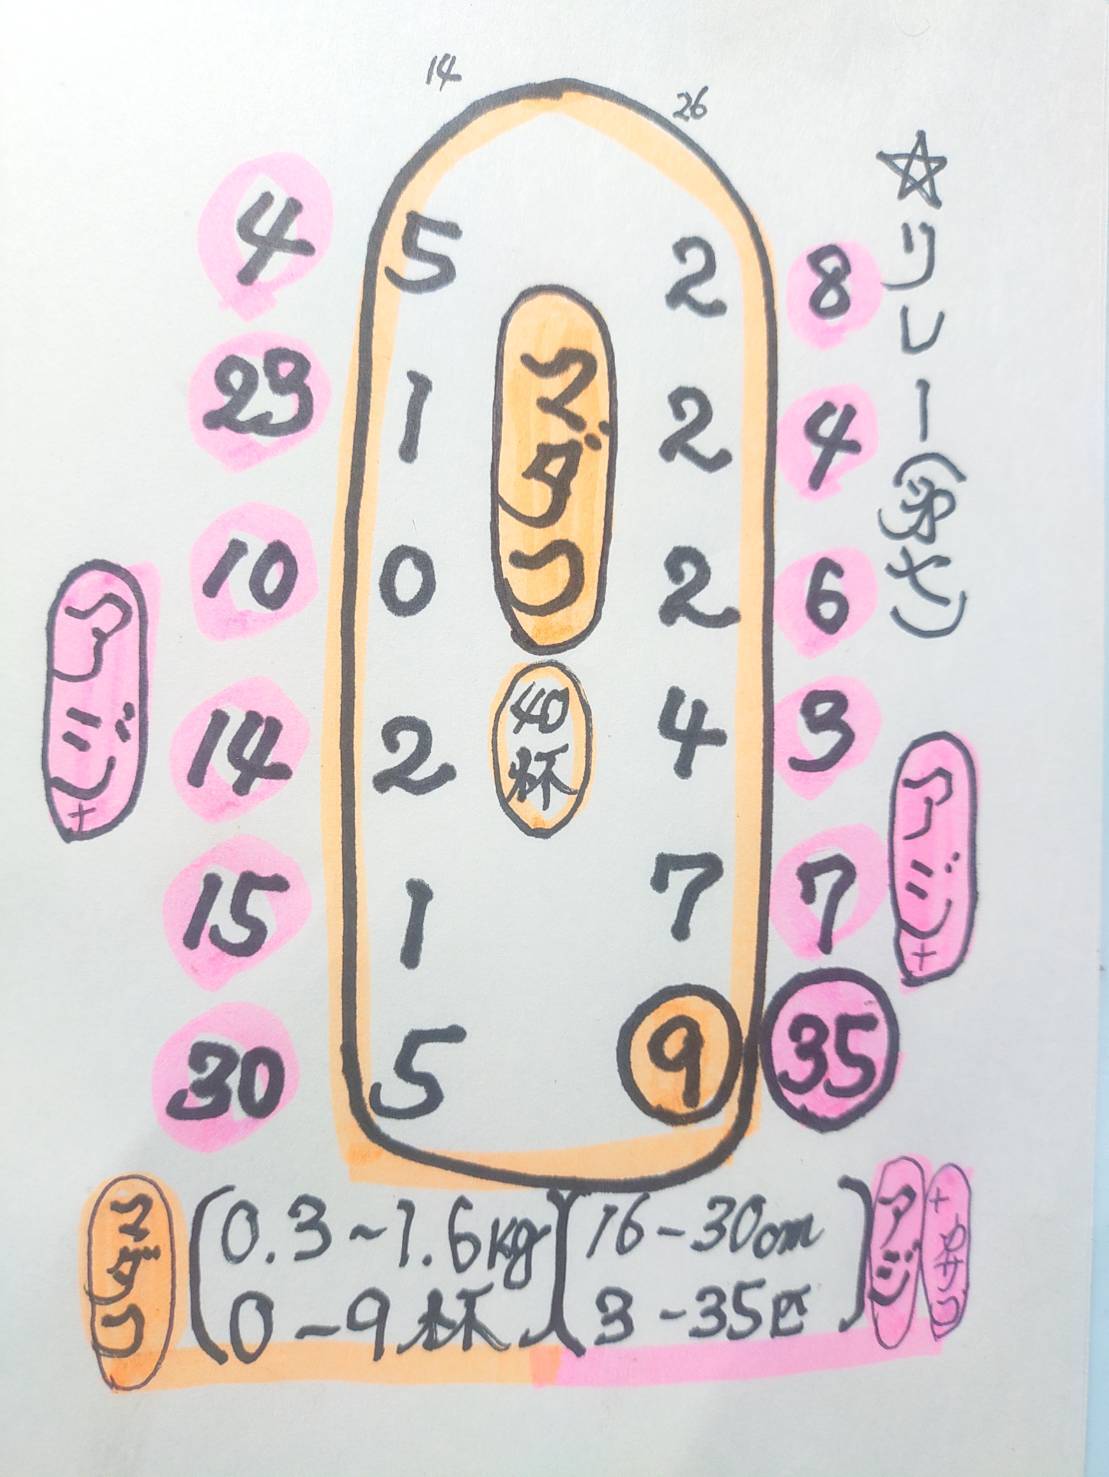 14 26
☆リレー(弥七)
4 5 2 8
23 1 2 4
マダコ
10 0 2 6
14 2 4 3
40杯
15 1 7 7
30 5 9 35
アジ+
アジ+
マダコ (0.3~1.6kg)(16-30cm) アジ +カサゴ
0~9杯 3-35匹